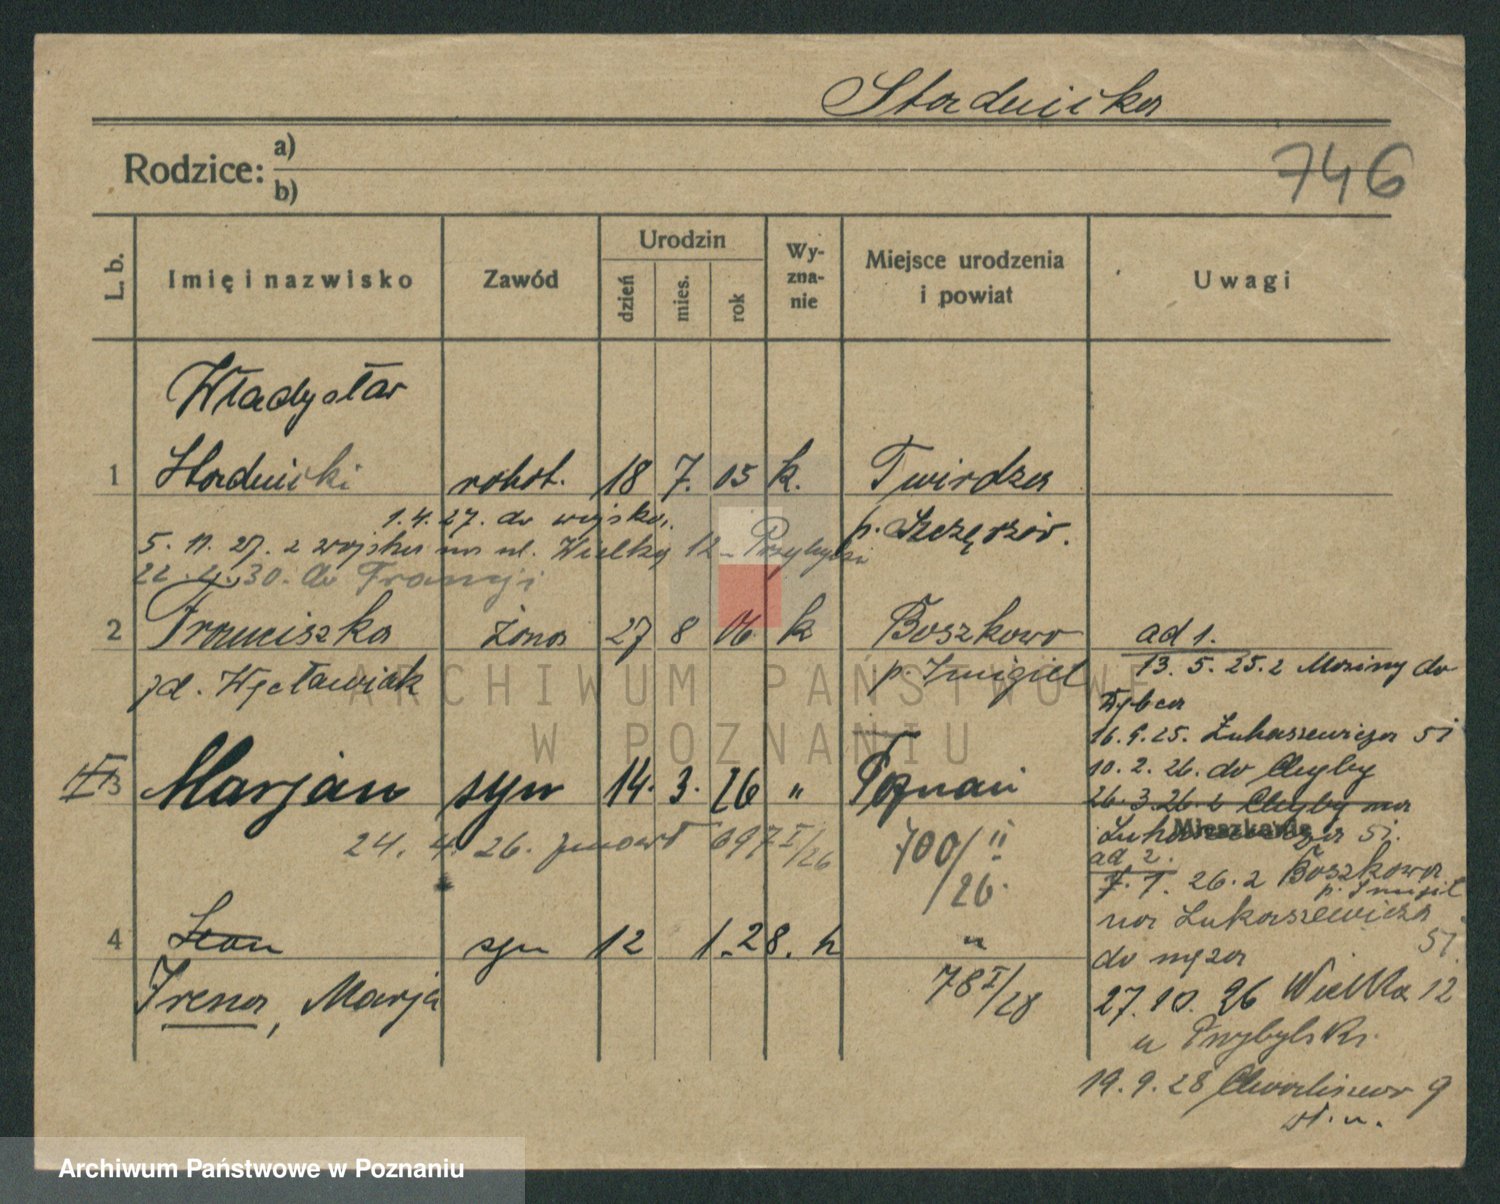 Stodnicka
746
Rodzice: a)
b)
L. b.
Imię i nazwisko
Zawód
Urodzin
dzień
mies.
rok
Wy-
zna-
nie
Miejsce urodzenia
i powiat
Uwagi
Władysław
1 Stodnicki robot. 18 7. 05 k. Twirdza
p. Szczęrzów.
1.4.27. do wojska,
5. 11. 27. z wojska na ul. Wielką 12 Przybylski
22. 4. 30. do Francji
2 Franciszka żona 27 8 06 k Boszkowo
jd. Węcławiak p. Śmigiel
3 Marjan syn 14. 3. 26 " Poznań
24. 4. 26. zmarł 697 I/26 700/II
/26.
4 Leon syn 12 1. 28. k "
Irena, Marja 78 I/28
ad 1.
13. 5. 25. z Mosiny do
Dębca
16. 9. 25. Łukaszewicza 51
10. 2. 26. do Chyby
26. 3. 26. z Chyby na
Łukaszewicza 51.
Mieszkanie
ad 2.
7. 1. 26. z Boszkowa
p. Śmigiel
na Łukaszewicza
51.
do męża
27. 10. 26 Wielka 12
u Przybylski.
19. 9. 28 Chwaliszewo 9
ARCHIWUM PAŃSTWOWE
W POZNANIU
Archiwum Państwowe w Poznaniu